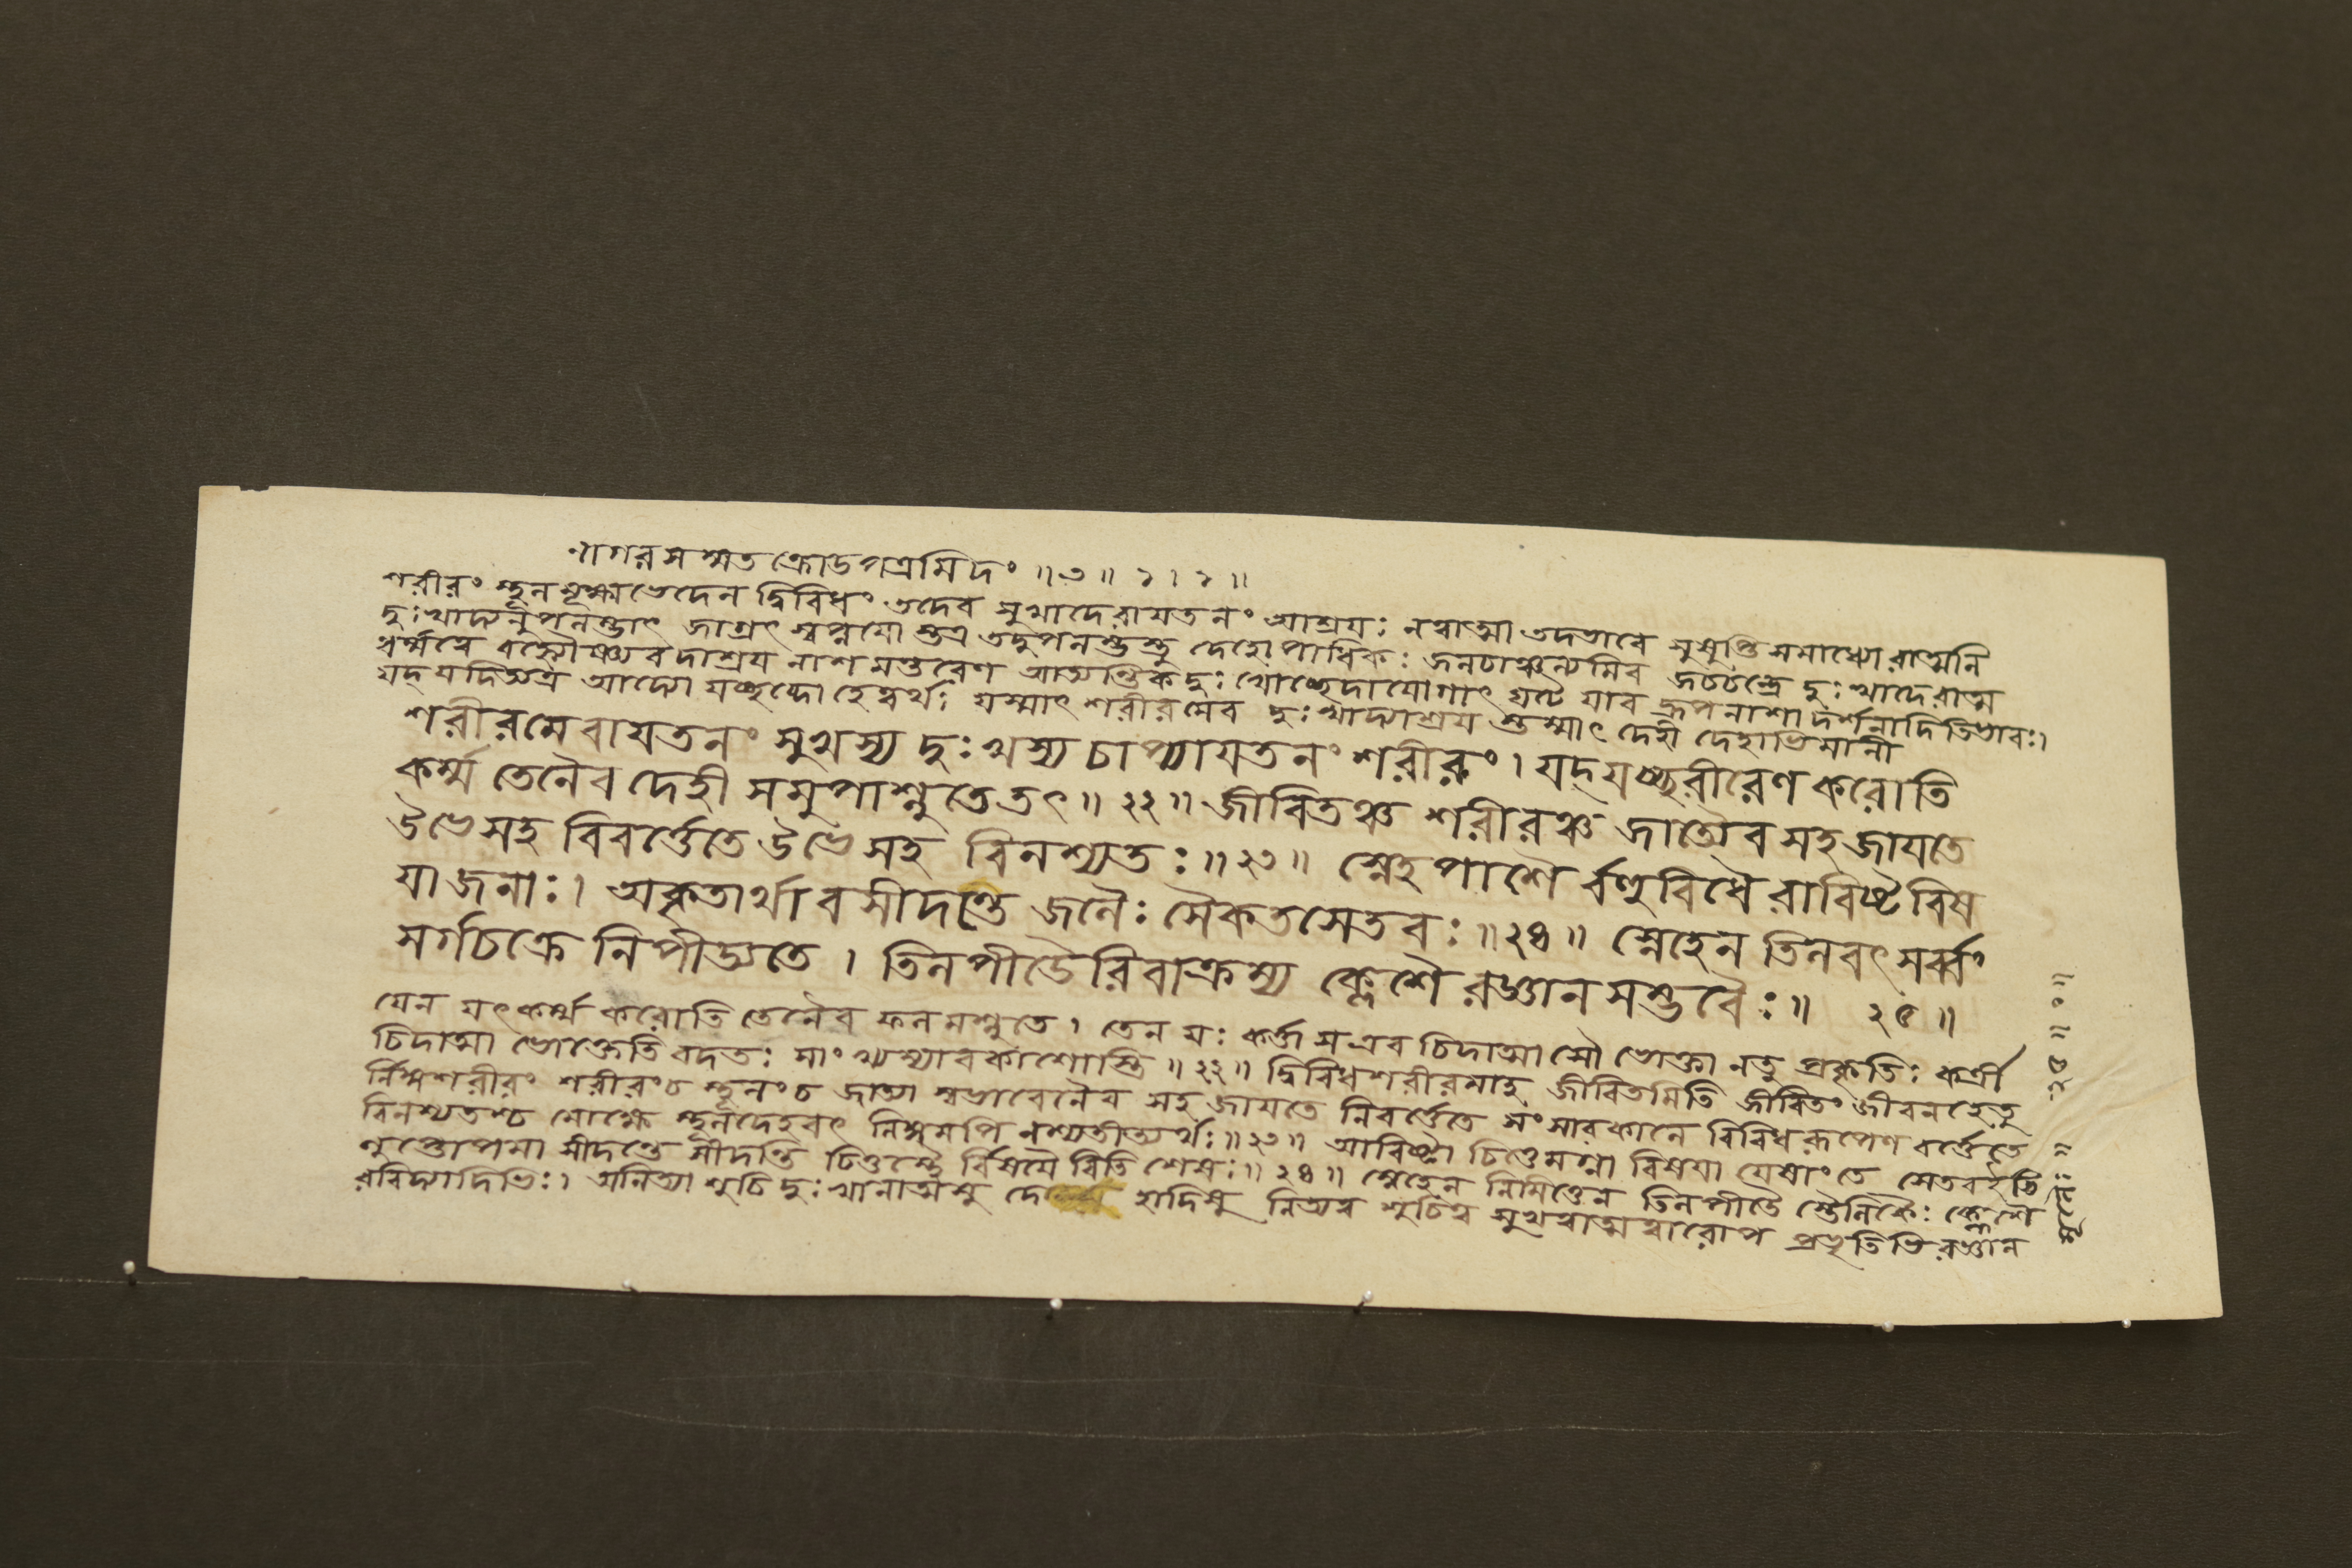 নাগরসম্মতক্রোডপত্রমিদং ॥৩॥ ১।১॥
শরীরং স্থূলসূক্ষ্মভেদেন দ্বিবিধং তদেব সুখাদেরাযতনং আশ্রযঃ নত্বাত্মা তদভাবে সুষুপ্তিসমাধ্যোরাত্মনি
দুঃখাদ্যনুপলম্ভাৎ জাগ্রৎস্বপ্নযো স্তত্র তদুপলম্ভস্তু দেহোপাধিকঃ জলচাঞ্চল্যমিব জলচন্দ্রে দুঃখাদেরাত্ম
ধর্ম্মত্বে বহ্নৌষ্ণ্যবদাশ্রয নাশমন্তরেণ আত্যন্তিকদুঃখোচ্ছেদাযোগাৎ ঘটে যাব দ্রূপনাশাদর্শনাদিতিভাবঃ।
যদ্ যদিত্যত্র আদ্যো যচ্ছব্দো হেত্বর্থঃ যস্মাৎ শরীরমেব দুঃখাদ্যাশ্রয স্তস্মাৎ দেহী দেহাভিমানী
শরীরমেবাযতনং সুখস্য দুঃখস্য চাপ্যাযতনং শরীরং। যদ্ যচ্ছরীরেণ করোতি
কর্ম্ম তেনৈব দেহী সমুপাশ্নুতে তৎ॥ ২২॥ জীবিতঞ্চ শরীরঞ্চ জাত্যৈব সহ জাযতে
উভে সহ বিবর্ত্তেতে উভে সহ বিনশ্যতঃ॥ ২৩॥ স্নেহপাশৈ র্বহুবিধৈরাবিষ্টবিষ
যা জনাঃ। অকৃতার্থাবসীদন্তে জলৈঃ সৈকতসেতবঃ॥ ২৪॥ স্নেহেন তিলবৎ সর্ব্বং
সর্গচক্রে নিপীড্যতে। তিলপীডৈরিবাক্রম্য ক্লেশৈরজ্ঞানসম্ভবৈঃ॥ ২৫॥
যেন যৎ কর্ম্ম করোতি তেনৈব ফলমশ্নুতে। তেন যঃ কর্ত্তা স এব চিদাত্মাসৌ ভোক্তা নতু প্রকৃতিঃ কর্ত্রী
চিদাত্মা ভোক্তেতি বদতঃ সাংখ্যস্যাবকাশোস্তি॥ ২২॥ দ্বিবিধশরীরমাহ জীবিতমিতি জীবিতং জীবনহেতু
র্লিঙ্গশরীরং শরীরংচ স্থূলংচ জাত্যা স্বভাবেনৈব সহ জাযতে বিবর্ত্তেতে সংসারকালে বিবিধরূপেণ বর্ত্তেতে
বিনশ্যতশ্চ মোক্ষে স্থূলদেহবৎ লিঙ্গমপি নশ্যতীত্যর্থঃ॥ ২৩॥ আবিষ্টা চিত্তেমগ্না বিষযা যেষাং তে সেতবইতি
লুপ্তোপমা সীদন্তে সীদন্তি চিত্তস্থৈ র্বিষযৈ রিতি শেষঃ॥ ২৪॥ স্নেহেন নিমিত্তেন তিলপীডৈ স্তৈলিকৈঃ ক্লেশৈ
রবিদ্যাদিভিঃ। অনিত্যাশুচিদুঃখানাত্মসু দেহাদিষু নিত্যত্ব শুচিত্ব সুখত্বাত্মত্বারোপ প্রভৃতিভিরজ্ঞান